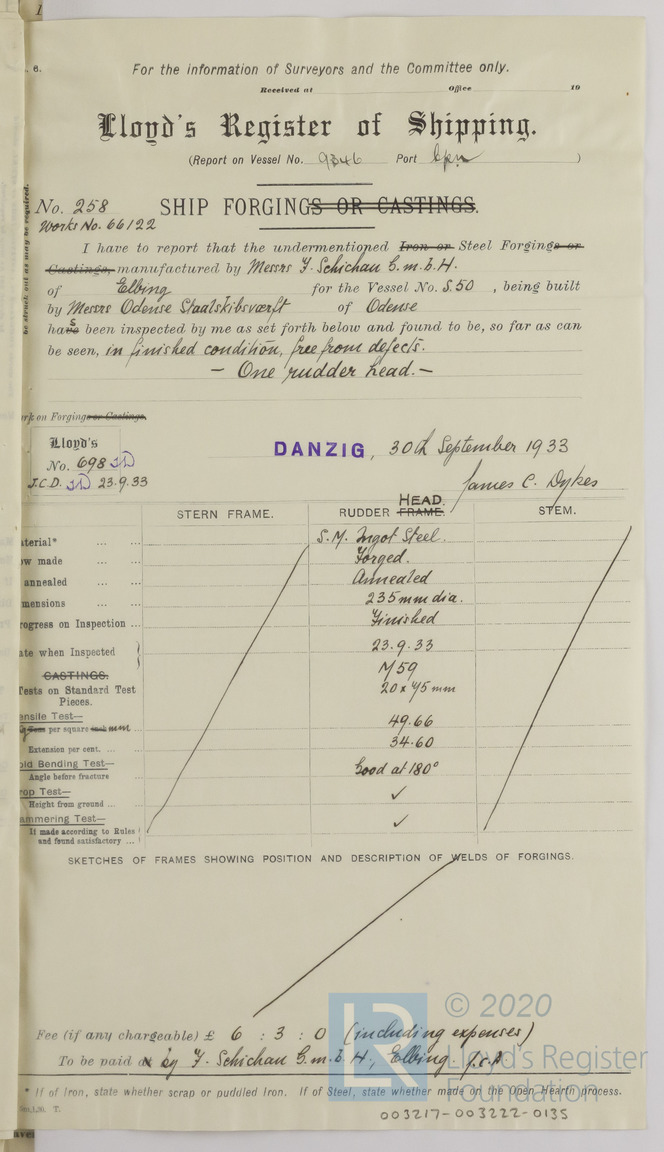 1
. 6.
For the information of Surveyors and the Committee only.
Received at Office 19
Lloyd's Register of Shipping.
(Report on Vessel No. 9346 Port Cpn )
No. 258 SHIP FORGINGS OR CASTINGS.
Works No. 66122
I have to report that the undermentioned Iron or Steel Forgings or
Castings, manufactured by Messrs F. Schichau G.m.b.H.
of Elbing for the Vessel No. S.50 , being built
by Messrs Odense Staalskibsværft of Odense
has been inspected by me as set forth below and found to be, so far as can
be seen, in finished condition, free from defects.
— One rudder head. —
be struck out as may be required.
rk on Forging or Castings.
Lloyd's
No. 698 JD
J.C.D. JD 23.9.33
DANZIG, 30th September 1933
James C. Dykes
STERN FRAME. RUDDER HEAD FRAME. STEM.
aterial* ... ... S.M. Ingot Steel.
ow made ... ... Forged.
annealed ... ... Annealed
mensions ... ... 235 mm dia.
rogress on Inspection ... Finished
ate when Inspected 23.9.33
CASTINGS. M59
Tests on Standard Test 20 x 45 mm
Pieces.
ensile Test—
per square inch mm ... 49.66
Extension per cent. ... ... 34.60
old Bending Test— Good at 180°
Angle before fracture
rop Test— ✓
Height from ground ...
ammering Test— ✓
If made according to Rules
and found satisfactory ...
SKETCHES OF FRAMES SHOWING POSITION AND DESCRIPTION OF WELDS OF FORGINGS.
© 2020
Fee (if any chargeable) £ 6 : 3 : 0 (including expenses)
To be paid by F. Schichau G.m.b.H., Elbing. J.C.D
LR Lloyd's Register
Foundation
* If of Iron, state whether scrap or puddled Iron. If of Steel, state whether made on the Open Hearth process.
003217-003222-0135